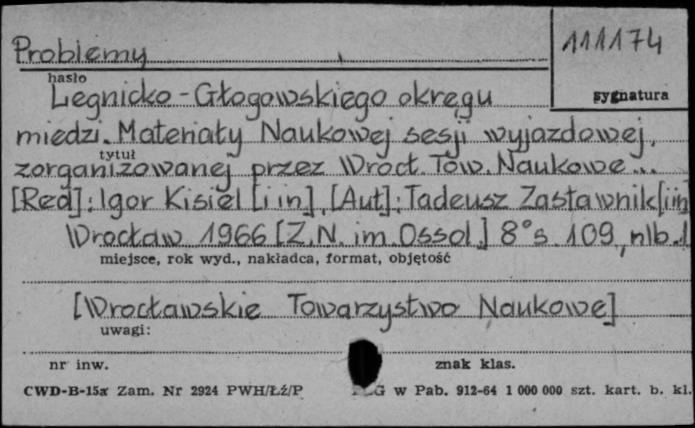 Problemy
111174
hasło
sygnatura
Legnicko-Głogowskiego okręgu
miedzi. Materiały Naukowej sesji wyjazdowej,
tytuł
zorganizowanej przez Wrocł. Tow. Naukowe...
[Red]: Igor Kisiel [i in]. [Aut]: Tadeusz Zastawnik [i in]
Wrocław 1966 [Z.N. im. Ossol.] 8° s. 109, nlb. 1
miejsce, rok wyd., nakładca, format, objętość
[Wrocławskie Towarzystwo Naukowe]
uwagi:
nr inw.
znak klas.
CWD-B-15a Zam. Nr 2924 PWH/Łź/P w Pab. 912-64 1 000 000 szt. kart. b. kl.